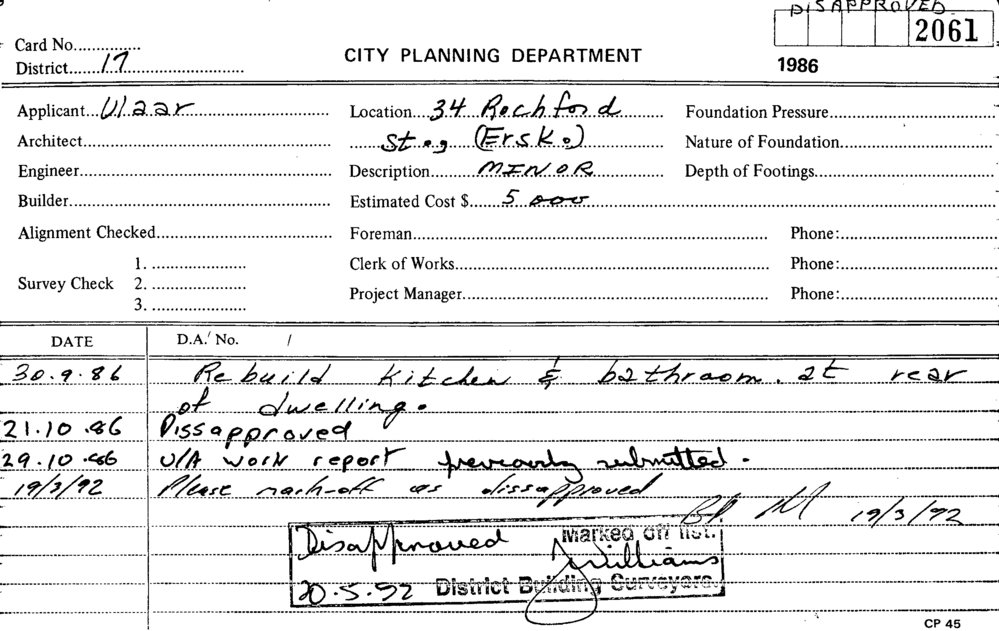 DISAPPROVED
2061
Card No.
District 17
CITY PLANNING DEPARTMENT
1986
Applicant Ulaar Location 34 Rochford Foundation Pressure
Architect St., (Ersk.) Nature of Foundation
Engineer Description MINOR Depth of Footings
Builder Estimated Cost $ 5 000
Alignment Checked Foreman Phone:
1. Clerk of Works Phone:
Survey Check 2.
Project Manager Phone:
3.
DATE D.A. No. /
30.9.86 Rebuild Kitchen & bathroom. at rear
of dwelling.
21.10.86 Dissapproved
29.10.86 U/A work report previously submitted.
19/3/92 Please mark-off as dissapproved
19/3/92
Disapproved Marked off list.
Williams
20.5.92 District Building Surveyors
CP 45